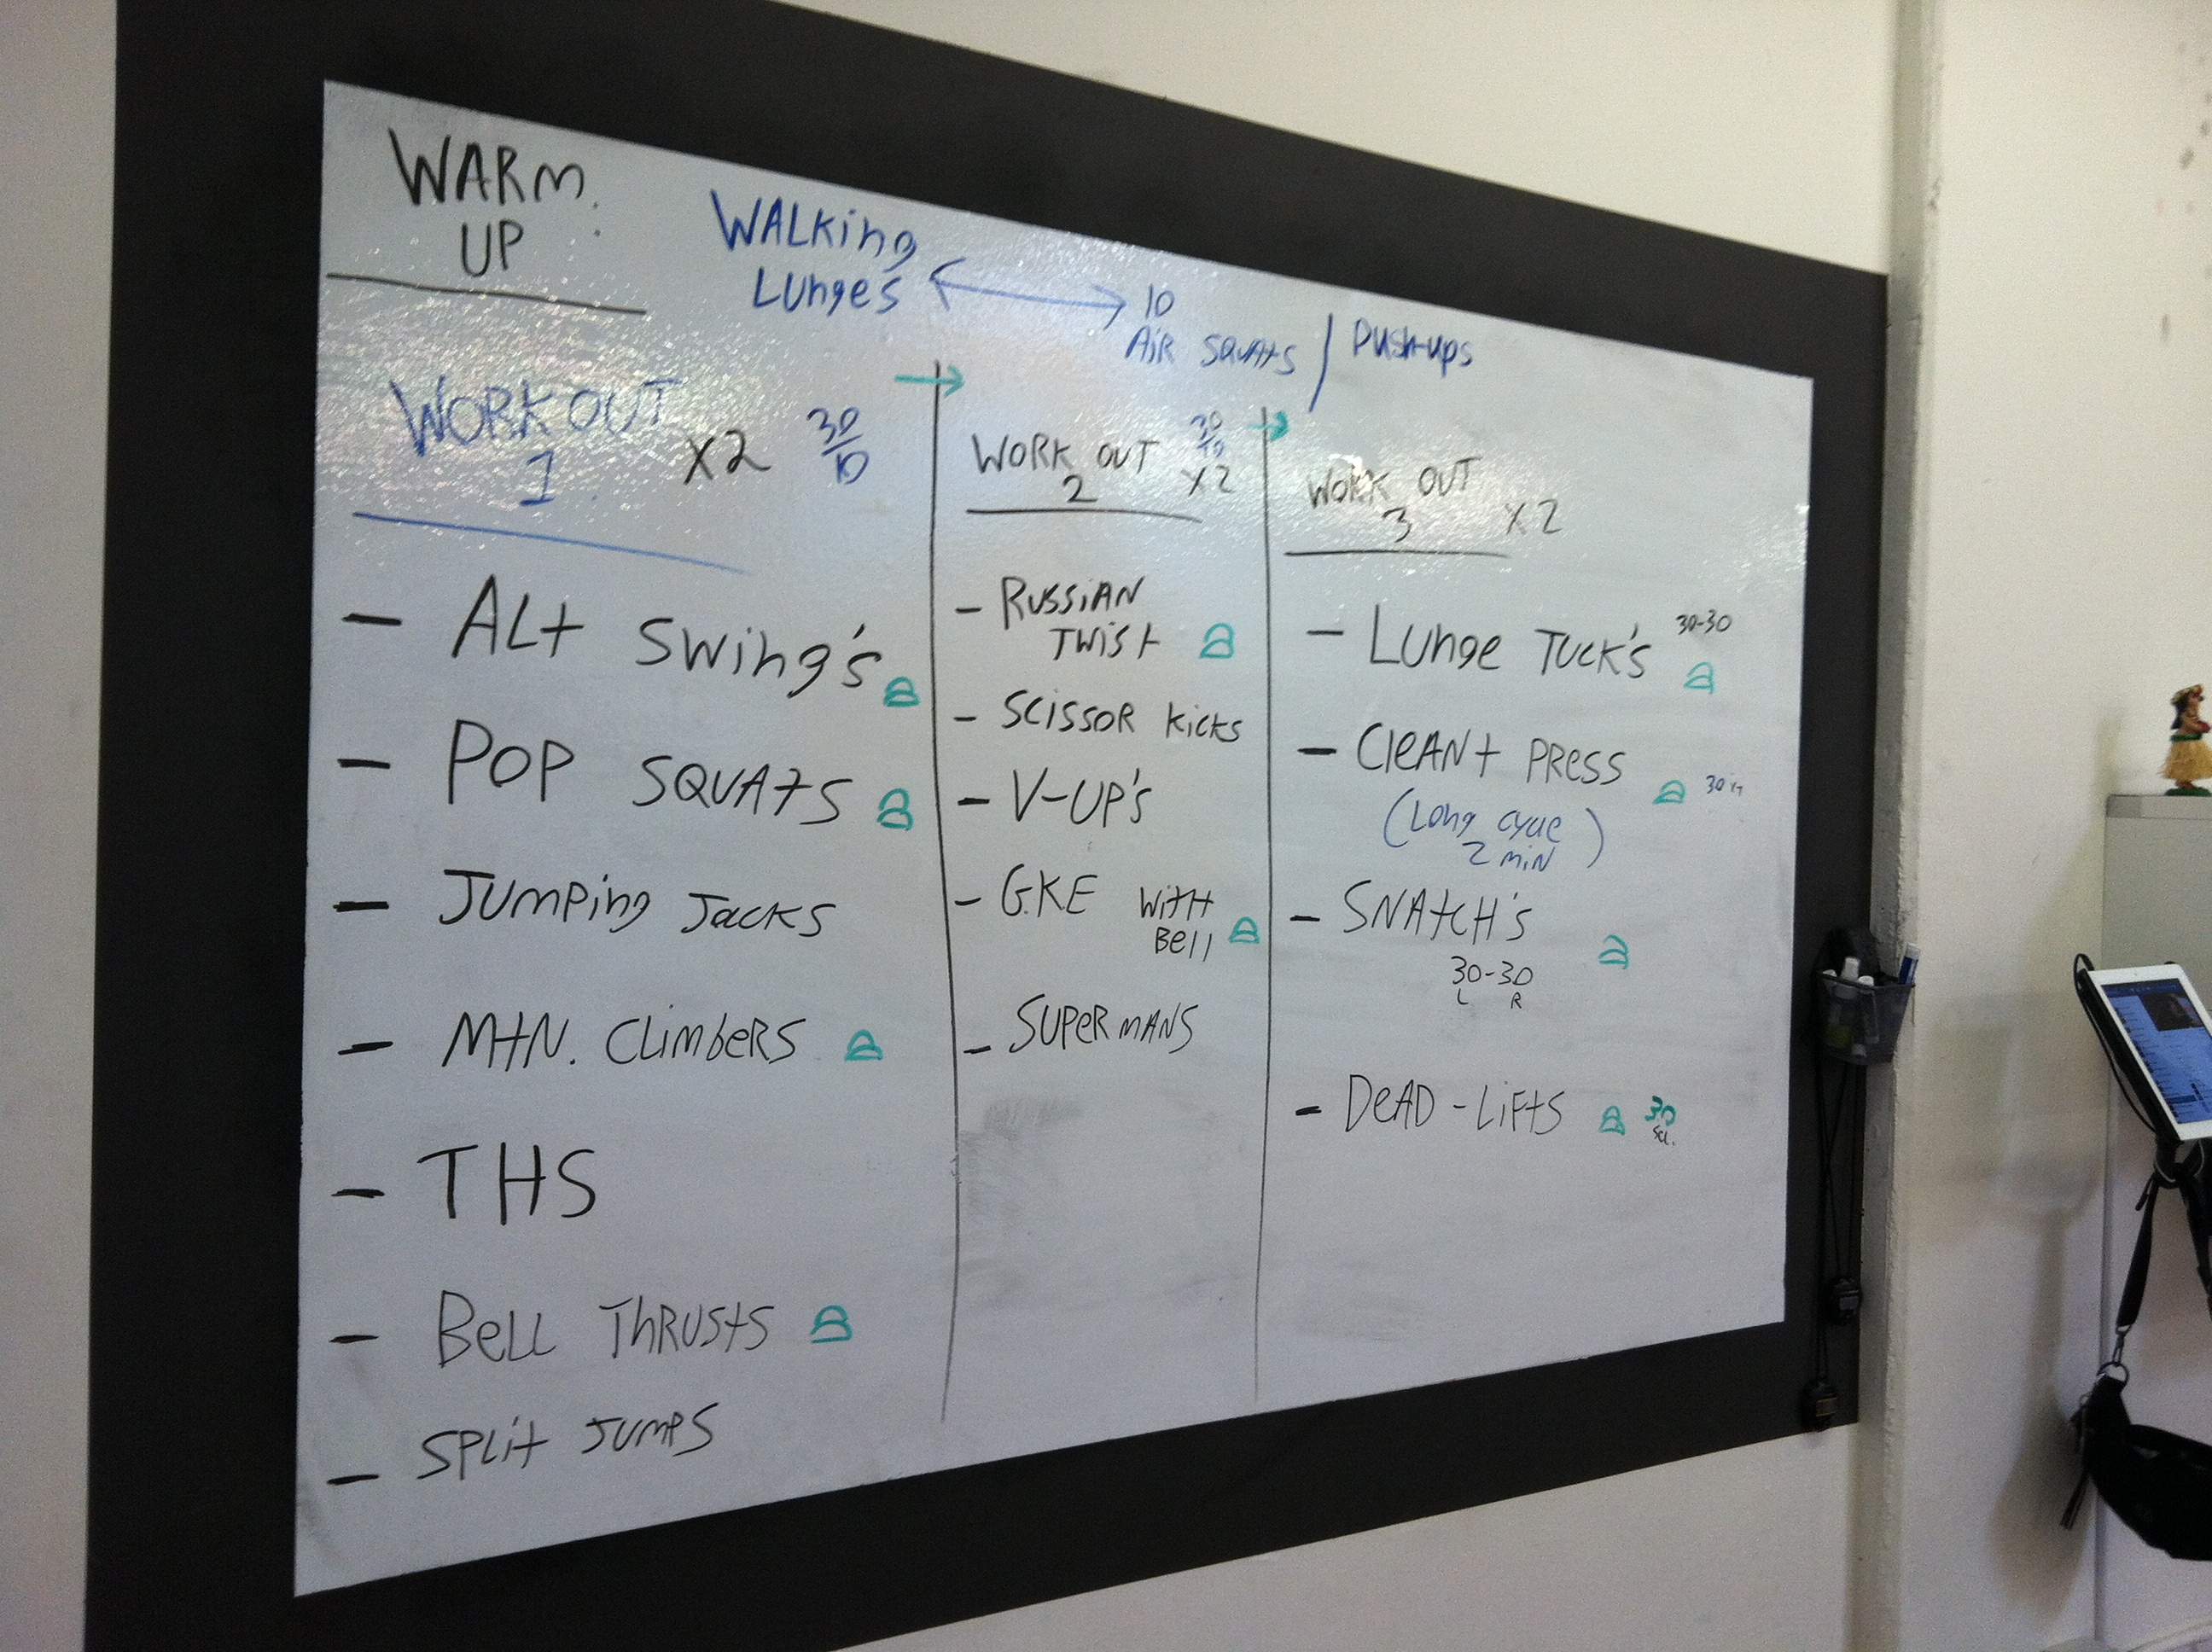 WARM
UP
WALKing
Lunges
10
Air squats / Push-ups
WORK OUT
1
X2
30
10
- ALt Swing's
- POP SQUAtS
- Jumping Jacks
- Mtn. Climbers
- THS
- Bell Thrusts
- Split Jumps
WORK OUT
2
30
10
X2
- RUSSiAN
Twist
- Scissor Kicks
- V-UP's
- G.K.E With
Bell
- SUPERMANS
WORK OUT
3
X2
- Lunge Tuck's 30-30
- CleAn + Press
(Long cycle
2 min)
- SNAtCH's
30-30
L R
- DeAD-LiFtS 30
sec.